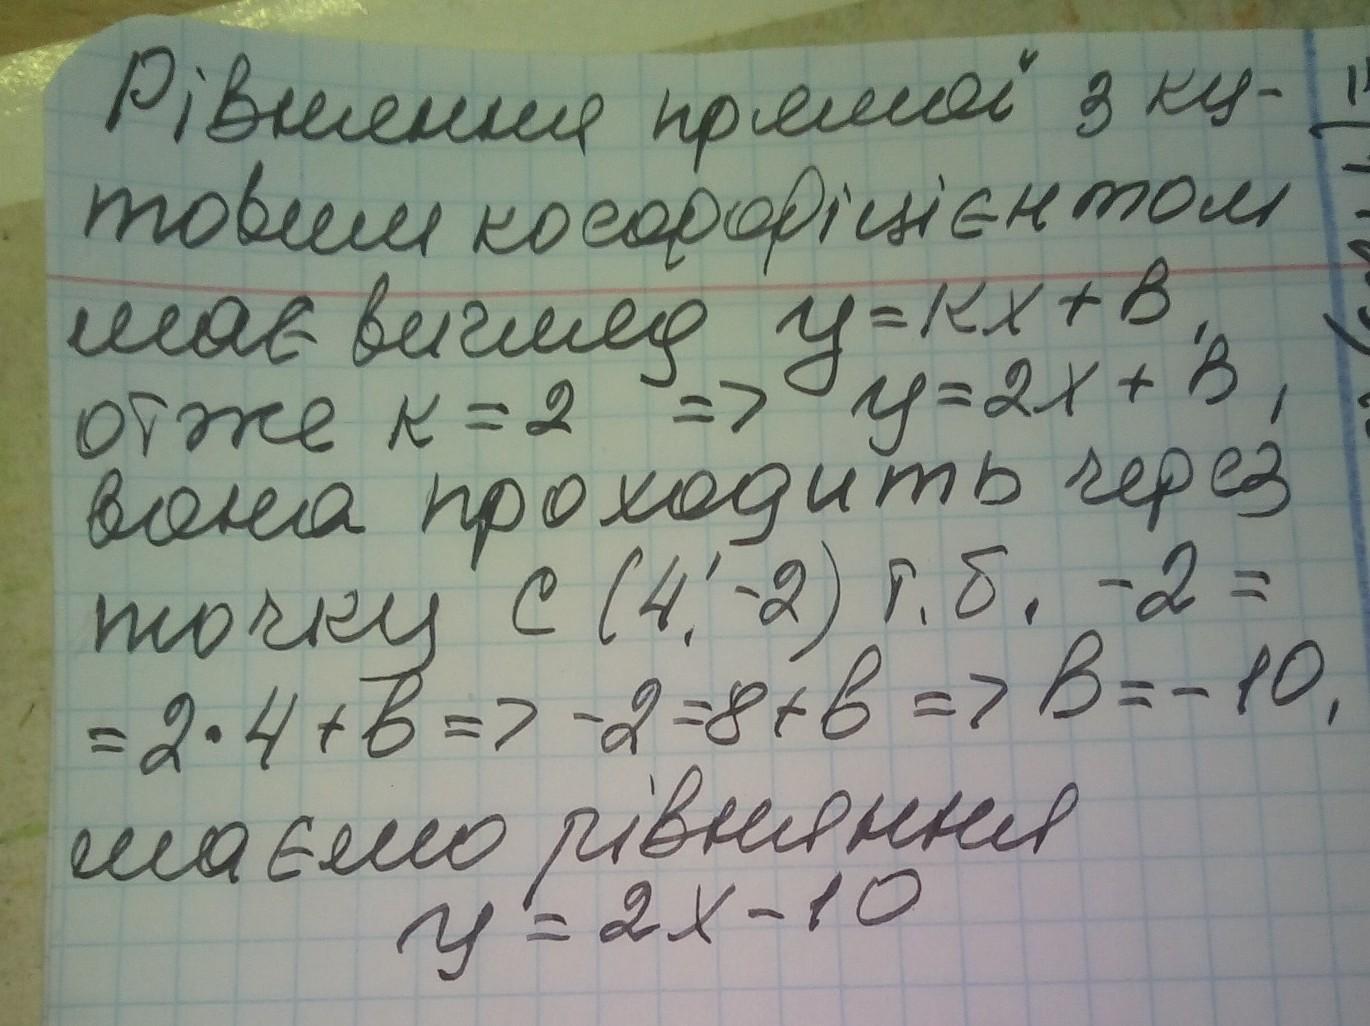 Рівняння прямої з ку-
товим коефіцієнтом
має вигляд y=кx+в,
отже к=2 => y=2x+в,
вона проходить через
точку С (4; -2) т.б. -2=
=2•4+в=> -2=8+в => в=-10,
маємо рівняння
y=2x-10